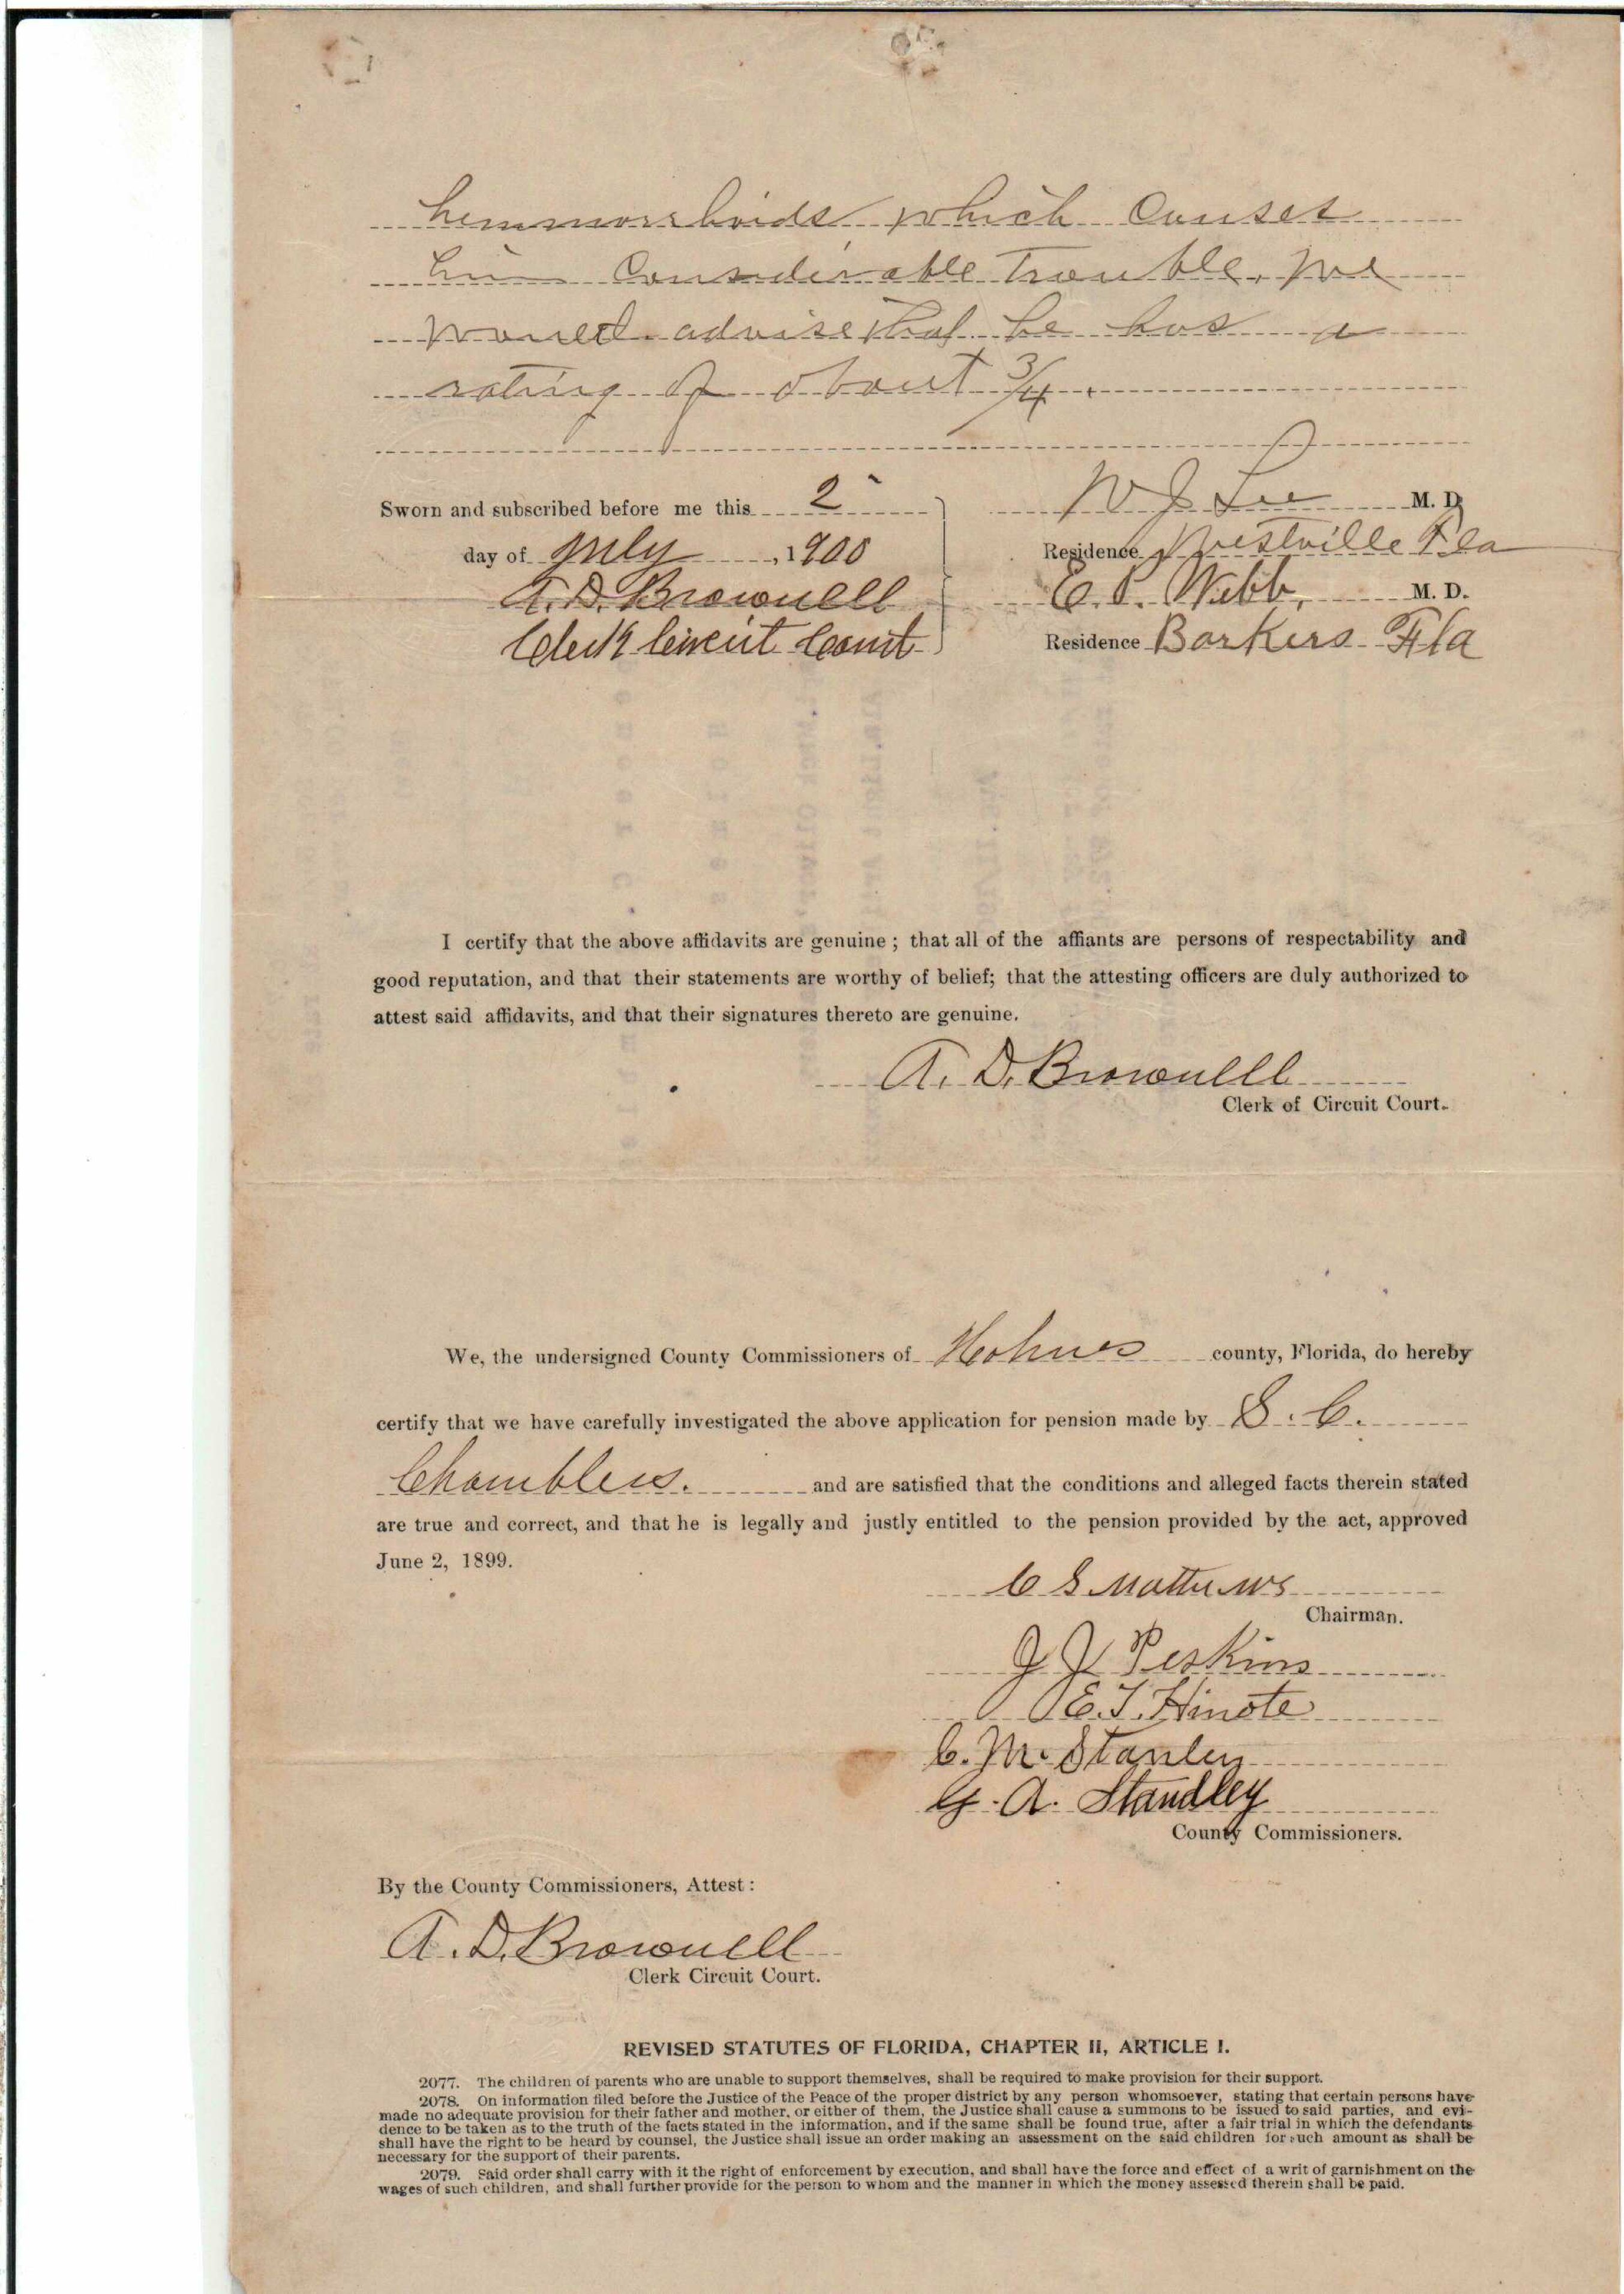 hemmorrhoids which causes
him Considerable Trouble. We
Would advise that he has a
rating of about 3/4.
Sworn and subscribed before me this 2
day of July , 1900
A. D. Brownell
Clerk Circuit Court
W J Lee M. D.
Residence Westville Fla
E. P. Webb, M. D.
Residence Barkers Fla
I certify that the above affidavits are genuine ; that all of the affiants are persons of respectability and
good reputation, and that their statements are worthy of belief; that the attesting officers are duly authorized to
attest said affidavits, and that their signatures thereto are genuine.
A. D. Brownell
Clerk of Circuit Court.
We, the undersigned County Commissioners of Holmes county, Florida, do hereby
certify that we have carefully investigated the above application for pension made by S. C.
Chambless. and are satisfied that the conditions and alleged facts therein stated
are true and correct, and that he is legally and justly entitled to the pension provided by the act, approved
June 2, 1899.
C S Matthews
Chairman.
J J Perkins
E. T. Hinote
C. M. Stanley
G. A. Standley
County Commissioners.
By the County Commissioners, Attest :
A. D. Brownell
Clerk Circuit Court.
REVISED STATUTES OF FLORIDA, CHAPTER II, ARTICLE I.
2077. The children of parents who are unable to support themselves, shall be required to make provision for their support.
2078. On information filed before the Justice of the Peace of the proper district by any person whomsoever, stating that certain persons have
made no adequate provision for their father and mother, or either of them, the Justice shall cause a summons to be issued to said parties, and evi-
dence to be taken as to the truth of the facts stated in the information, and if the same shall be found true, after a fair trial in which the defendants
shall have the right to be heard by counsel, the Justice shall issue an order making an assessment on the said children for such amount as shall be
necessary for the support of their parents.
2079. Said order shall carry with it the right of enforcement by execution, and shall have the force and effect of a writ of garnishment on the
wages of such children, and shall further provide for the person to whom and the manner in which the money assessed therein shall be paid.